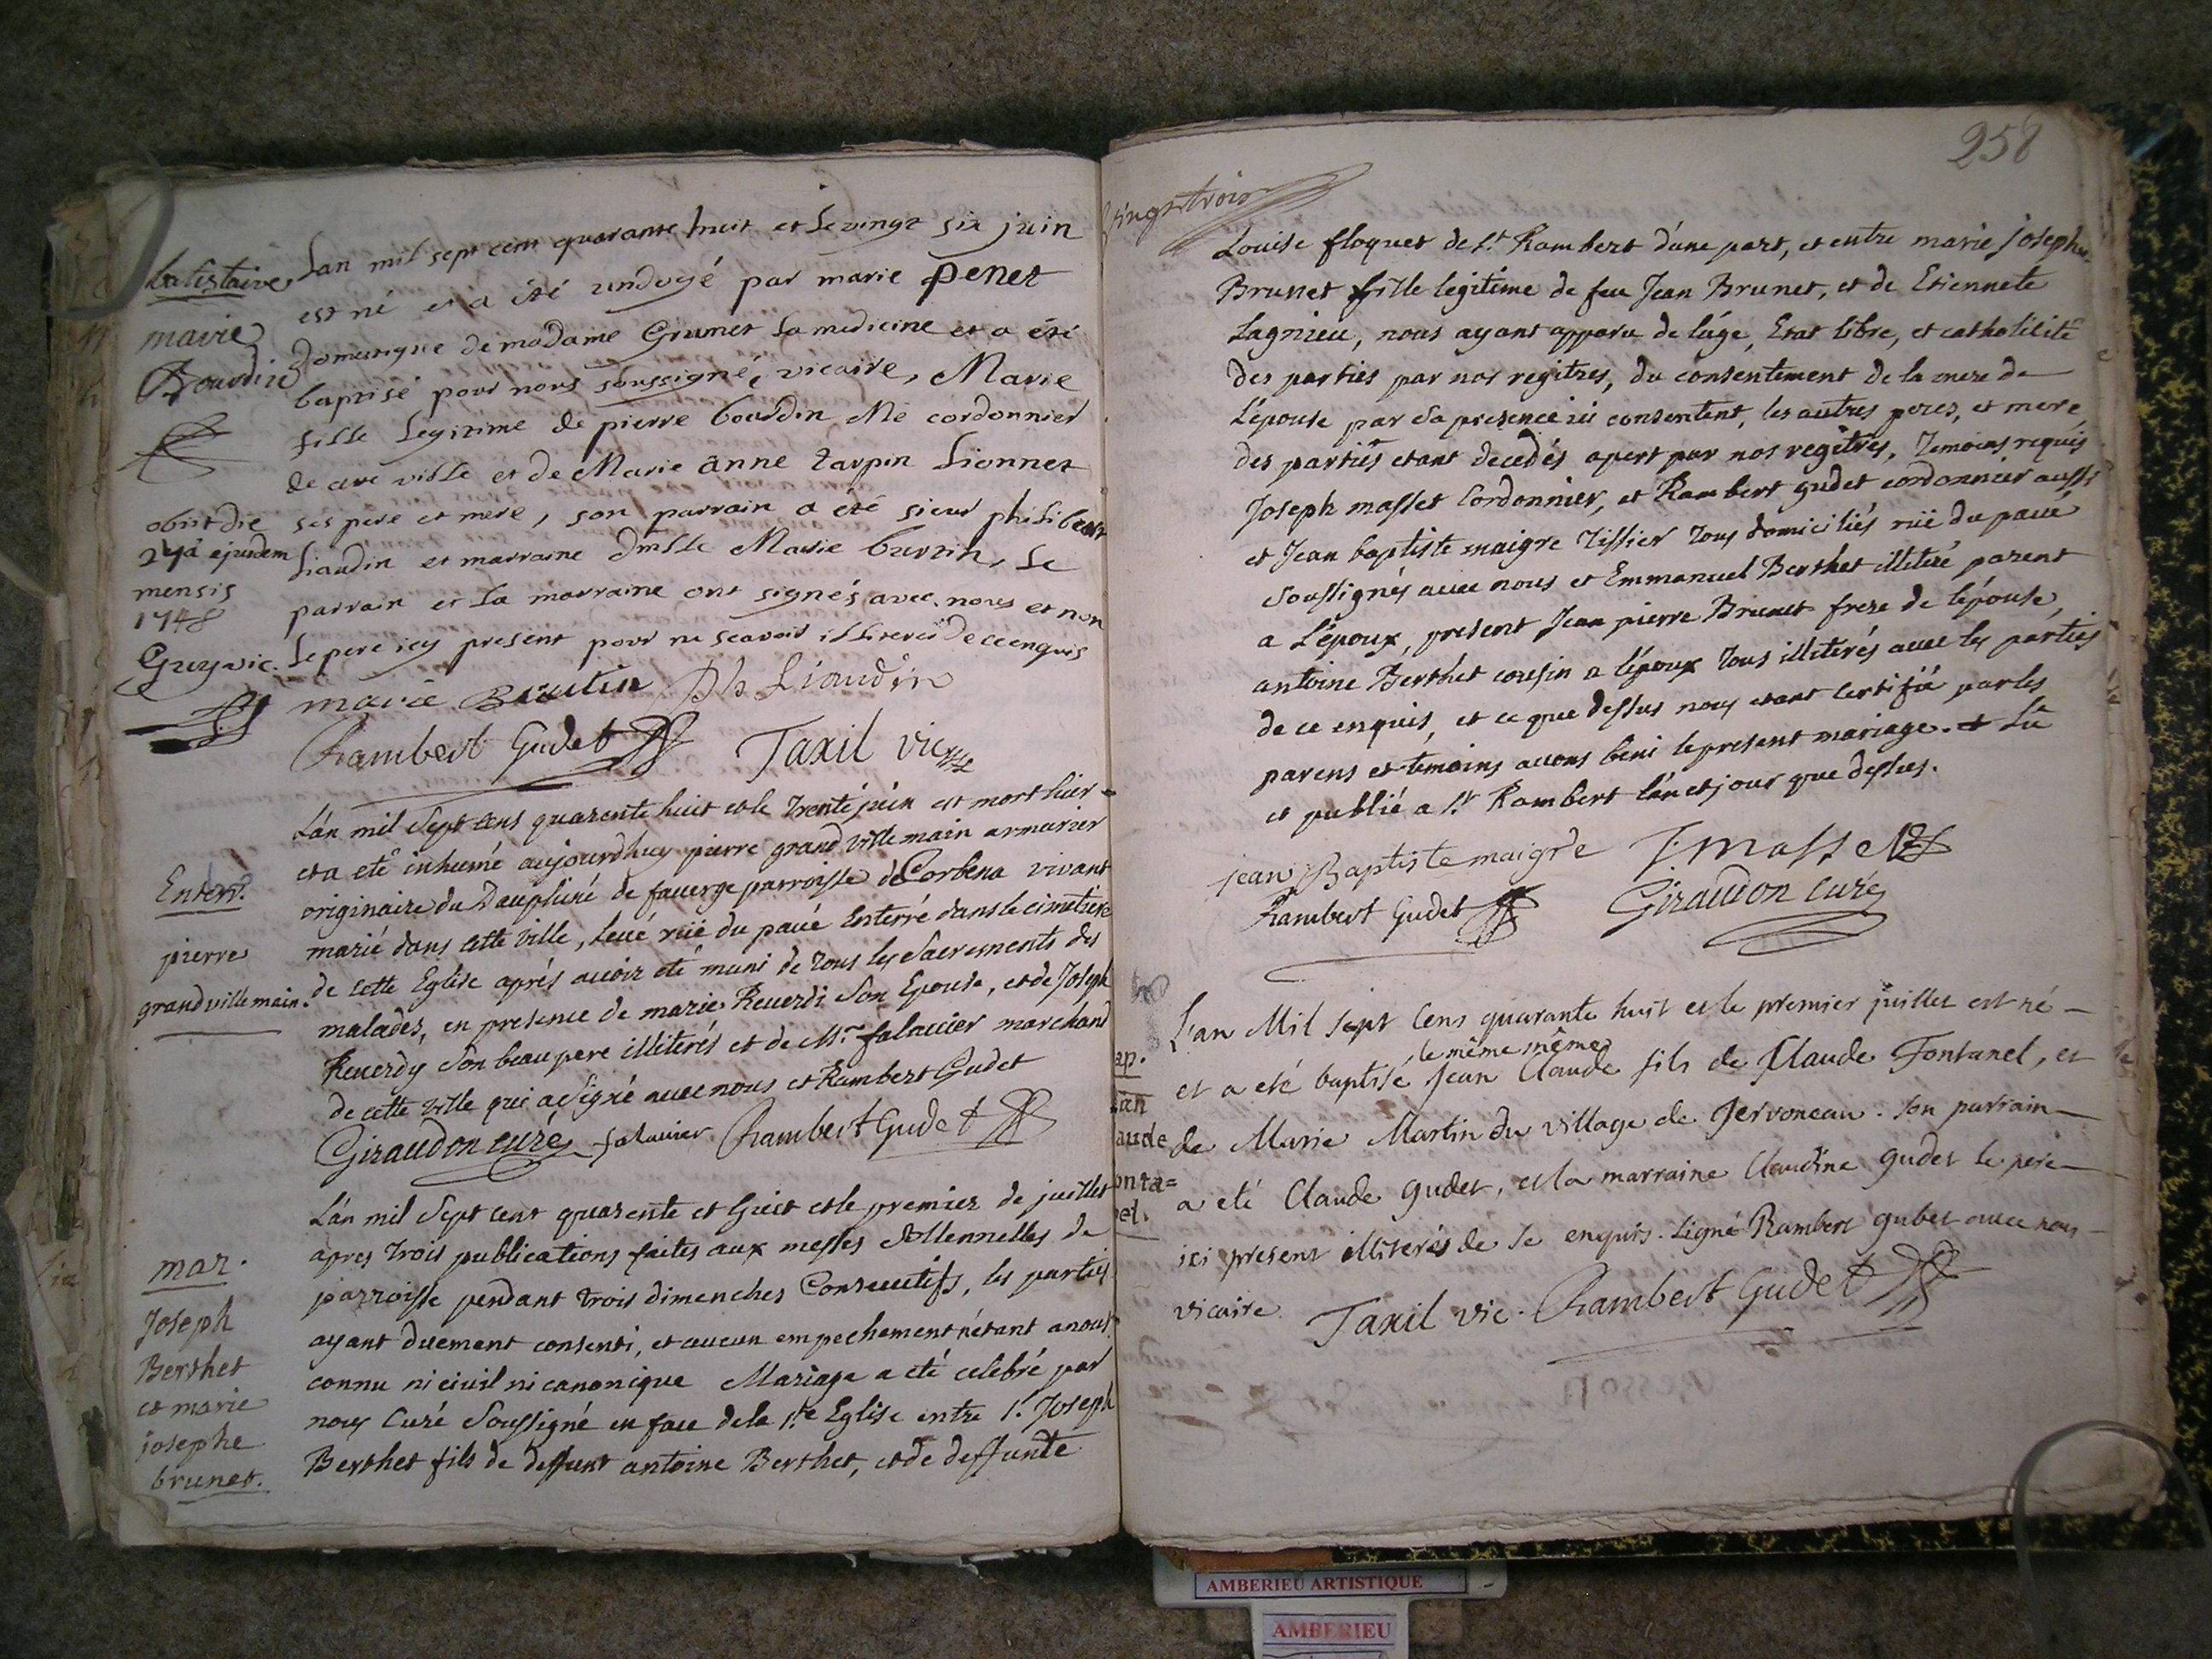 batistaire
marie
Bourdin
obiit die
ejusdem
mensis
1748
Lan mil sept cent quarante huit et le vingt six juin
est né et a été undoyé par marie penet
domestique de madame Grumet la medicine et a été
baptisé pour nous soussigné, vicaire, Marie
fille Legitime de pierre bourdin Me cordonnier
de cere ville et de Marie anne tarpin Lionnet
ses pere et mere, son parrain a été sieur philibert
Liaudin et marraine dmlle Marie burtin, Le
parrain et La marraine ont signés avec nous et non
Le pere icy present pour ne scavoir illiteres de ce enquis
marie Ph Liaudin
Rambert Gudet Taxil vicre
Enterr.
pierre
grand ville main.
Lán mil Sept cens quarente huit et le trente juin est mort hier =
et a eté inhumé aujourdhuy pierre grand ville main armurier
originaire du Dauphiné de fauerge parroisse de Corbena vivant
marié dans cette Ville, leué rüe du paué Enterré dans le cimetiere
de cette Eglise aprés auoir eté muni de tous les Sacrements des
malades, en presence de marie Reuerdi Son Epouse, et de Joseph
Reuerdy Son beau pere illiterés et de Mr. falauier marchand
de cette Ville qui a Signé auec nous et Rambert Gudet
Giraudon curé falauier Rambert Gudet
mar.
Joseph
Berthet
et marie
josephe
brunet.
Lán mil Sept cent quarente et huit et le premier de juillet
apres trois publications faites aux messes Sollennelles de
parroisse pendant trois dimenches Consecutifs, les parties
ayant duement consenti, et aucun empechement nétant a nous
connu ni ciuil ni canonique Mariage a eté celebré par
nous Curé Soussigné en face de la Ste Eglise entre Sr. Joseph
Berthet fils de deffunt antoine Berthet, et de deffunte
258
Louise floquet de St. Rambert d'une part, et entre marie josephe
Brunet fille legitime de feu Jean Brunet, et de Etiennete
Lagnieu, nous ayant apparu de l'áge, Etat libre, et catholicité
des parties par nos regitres, du consentement de la mere de
L'épouse par Sa presence ici consentent, les autres peres, et mere
des parties etant decedés apert par nos regitres, temoins requis
Joseph masset Cordonnier, et Rambert gudet cordonnier aussi
et Jean baptiste maigre tissier tous domiciliés rüe du paué
Soussignés auec nous et Emmanuel Berthet illiteré parent
a L'époux, present Jean pierre Brunet frere de lépouse,
antoine Berthet cousin a lépoux tous illiterés auec les parties
de ce enquis, et ce que dessus nous etant certifié par les
parens et temoins auons beni le present mariage. et Lû
et publié a St Rambert lán et jour que dessus.
jean Baptiste maigre J. masset
Rambert Gudet Giraudon curé
ap.
ean
aude
onta=
el.
L'an Mil sept Cens quarante huit et le premier juillet est né —
le même même
et a eté baptisé Jean Claude fils de Claude Fontanel, et
de Marie Martin du village de Jervoneau. Son parrain —
a eté Claude gudet, et la marraine Claudine gudet le pere —
ici present illiterés de se enquis. Signé Rambert gubet auec nous —
vicaire. Taxil vic. Rambert Gudet
AMBERIEU ARTISTIQUE
AMBERIEU